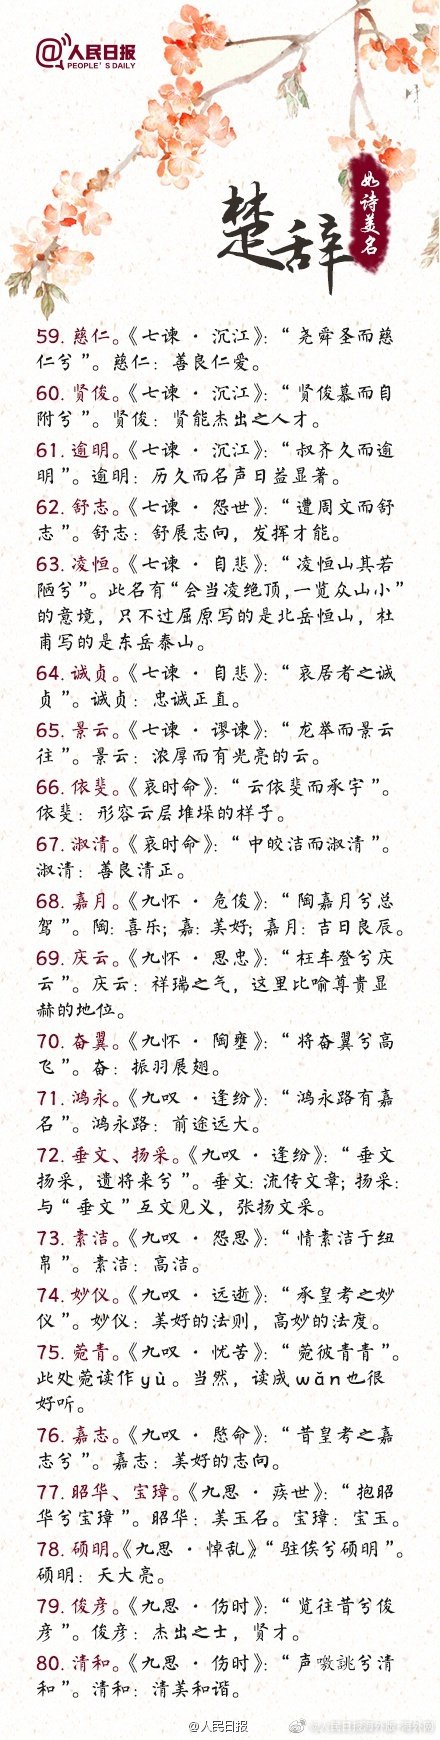 @人民日报
PEOPLE'S DAILY
楚辞
如诗美名
59. 慈仁。《七谏 · 沉江》：“尧舜圣而慈
仁兮”。慈仁：善良仁爱。
60. 贤俊。《七谏 · 沉江》：“贤俊慕而自
附兮”。贤俊：贤能杰出之人才。
61. 逾明。《七谏 · 沉江》：“叔齐久而逾
明”。逾明：历久而名声日益显著。
62. 舒志。《七谏 · 怨世》：“遭周文而舒
志”。舒志：舒展志向，发挥才能。
63. 凌恒。《七谏 · 自悲》：“凌恒山其若
陋兮”。此名有“会当凌绝顶，一览众山小”
的意境，只不过屈原写的是北岳恒山，杜
甫写的是东岳泰山。
64. 诚贞。《七谏 · 自悲》：“哀居者之诚
贞”。诚贞：忠诚正直。
65. 景云。《七谏 · 谬谏》：“龙举而景云
往”。景云：浓厚而有光亮的云。
66. 依斐。《哀时命》：“云依斐而承宇”。
依斐：形容云层堆垛的样子。
67. 淑清。《哀时命》：“中皎洁而淑清”。
淑清：善良清正。
68. 嘉月。《九怀 · 危俊》：“陶嘉月兮总
驾”。陶：喜乐；嘉：美好；嘉月：吉日良辰。
69. 庆云。《九怀 · 思忠》：“枉车登兮庆
云”。庆云：祥瑞之气，这里比喻尊贵显
赫的地位。
70. 奋翼。《九怀 · 陶壅》：“将奋翼兮高
飞”。奋：振羽展翅。
71. 鸿永。《九叹 · 逢纷》：“鸿永路有嘉
名”。鸿永路：前途远大。
72. 垂文、扬采。《九叹 · 逢纷》：“垂文
扬采，遗将来兮”。垂文：流传文章；扬采：
与“垂文”互文见义，张扬文采。
73. 素洁。《九叹 · 怨思》：“情素洁于纽
帛”。素洁：高洁。
74. 妙仪。《九叹 · 远逝》：“承皇考之妙
仪”。妙仪：美好的法则，高妙的法度。
75. 菀青。《九叹 · 忧苦》：“菀彼青青”。
此处菀读作yù。当然，读成wǎn也很
好听。
76. 嘉志。《九叹 · 愍命》：“昔皇考之嘉
志兮”。嘉志：美好的志向。
77. 昭华、宝璋。《九思 · 疾世》：“抱昭
华兮宝璋”。昭华：美玉名。宝璋：宝玉。
78. 硕明。《九思 · 悼乱》“驻俟兮硕明”。
硕明：天大亮。
79. 俊彦。《九思 · 伤时》：“览往昔兮俊
彦”。俊彦：杰出之士，贤才。
80. 清和。《九思 · 伤时》：“声噭誂兮清
和”。清和：清美和谐。
@人民日报
@人民日报海外版-海外网